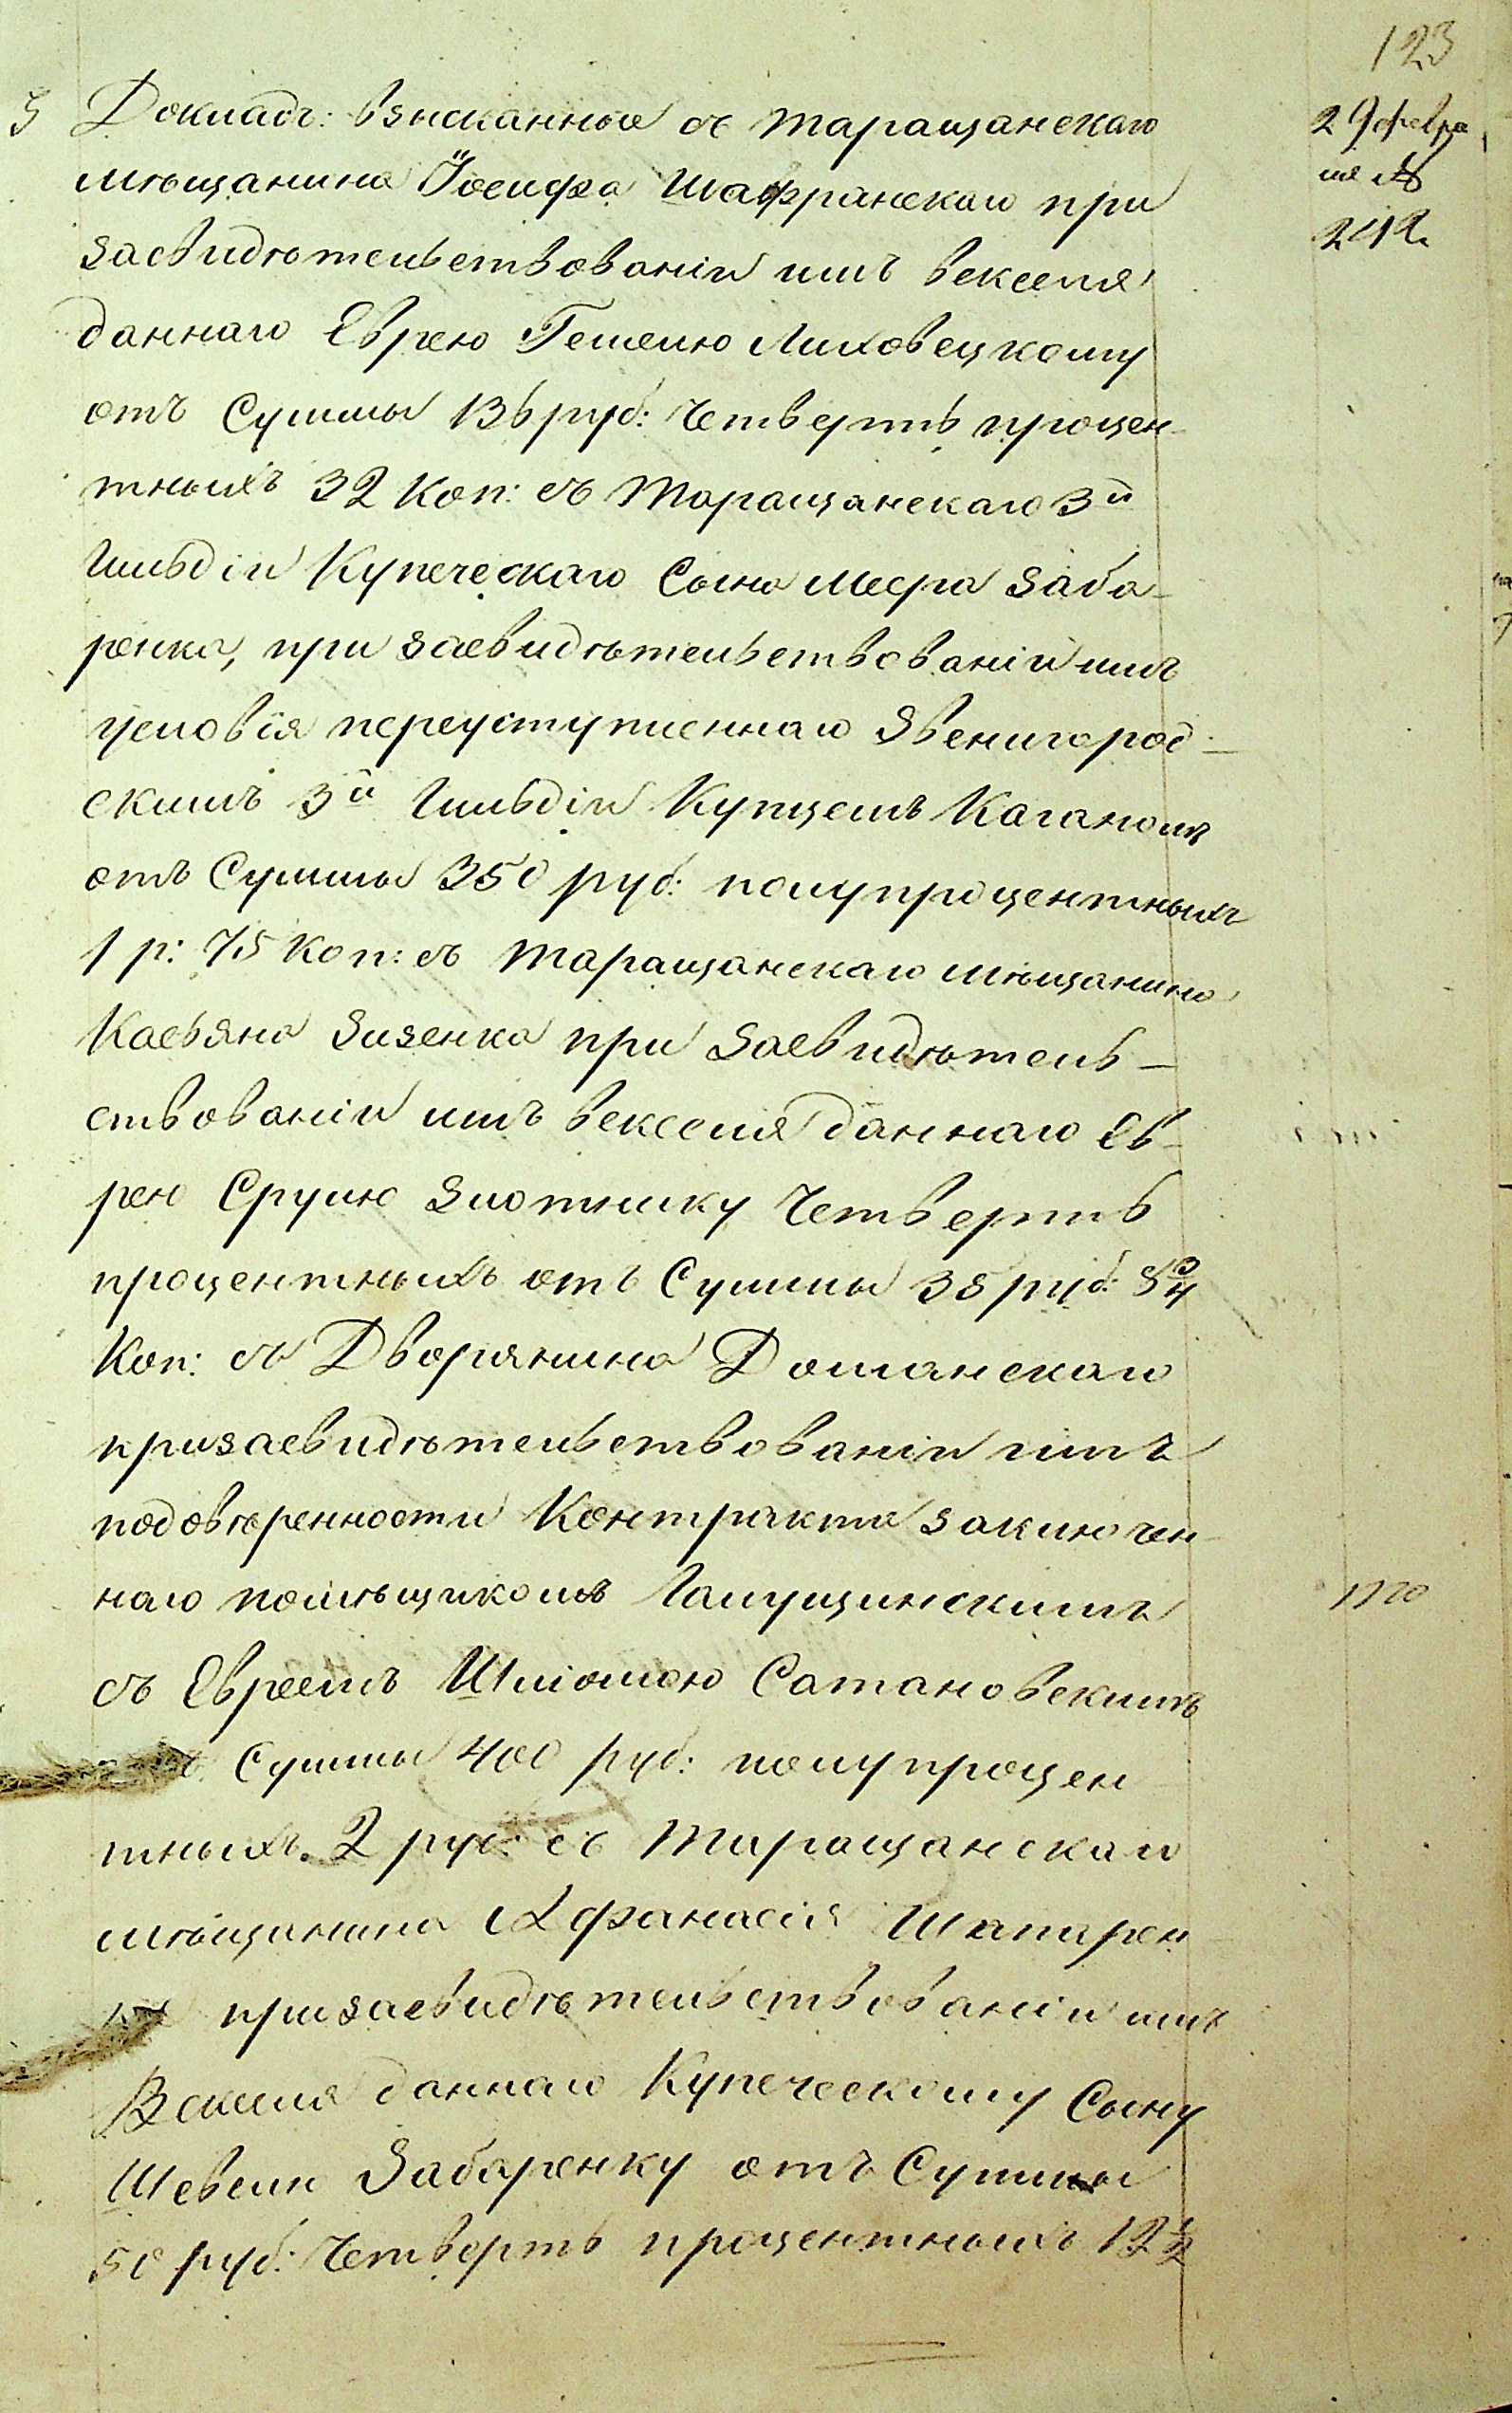 123
5 Докладъ: взысканные съ таращанскаго
мѣщанина Іосифа Шафранскаго при
засвидѣтельствованіи имъ векселя
даннаго Еврею Гешелю Лиховецкому
отъ Суммы 136 руб: Четверть процен-
тныхъ 32 Коп: съ Таращанскаго 3й
Гильдіи Купеческаго Сына Меера Заба-
ренка, при засвидѣтельствованіи имъ
условія переуступленнаго Звенигород-
скимъ 3й Гильдіи Купцемъ Каганомъ
отъ Суммы 350 руб: полупроцентныхъ
1 р: 75 Коп: съ таращанскаго мѣщанина
Касьяна Зизенка при засвидѣтель-
ствованіи имъ векселя даннаго Ев-
рею Срулю Злотнику Четверть
процентныхъ отъ Суммы 35 руб:
Коп: съ Дворянина Доманскаго
призасвидѣтельствованіи имъ
подовѣренности Контракта заключен-
наго помѣщикомъ Галущинскимъ
съ Евреемъ Шліомою Сатановскимъ
Суммы 400 руб: полупроцен
тныхъ. 2 руб: съ Таращанскаго
мѣщанина Афанасія Шапарен
ка призасвидѣтельствованіи имъ
Векселя даннаго Купеческому Сыну
Шевелю Забаренку отъ Суммы
50 руб: Четверть процентныхъ 12 ½
29 февра
ля